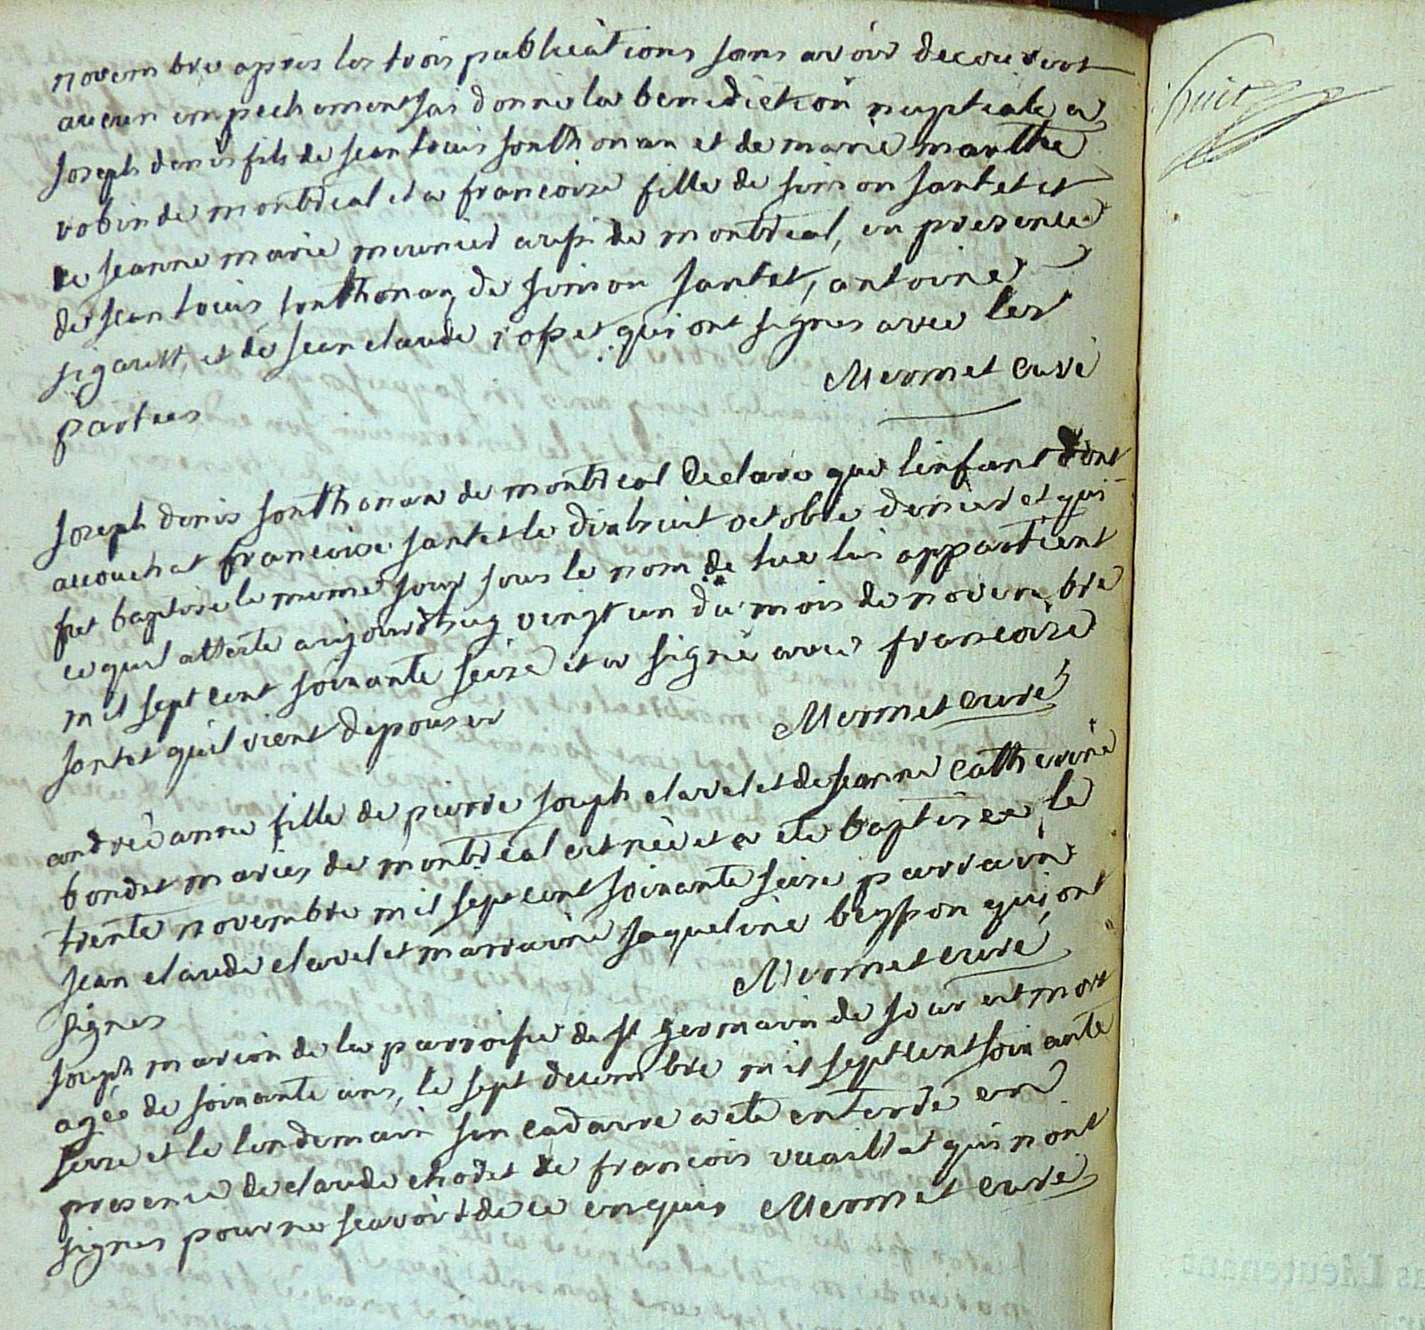 novembre apres les trois publications sans avoir decouvert
aucun empechement jai donné la benediction nuptiale a
Joseph denis fils de jean louis sonthonax et de marie marthe
robin de montreal et a francoise fille de simon santet et
de jeanne marie meunier aussi de montreal, en presence
de jean louis sonthonax de simon santet, antoine
figarett, et de jean claude rosset qui ont signes avec les
parties
Mermet curé
Joseph denis sonthonax de montreal declare que linfant dont
accouchat francoise santet le dixhuit octobre dernier et qui
fut baptise le meme jour sous le nom de luc lui appartient
ce quil atteste aujourdhuy vingt un du mois de novembre
mil sept cent soixante seize et a signé avec francoise
santet quil vient depouser
Mermet curé
andrée anne fille de pierre joseph clavel et de jeanne catherine
bondet maries de montreal est née et a ete baptisee le
trente novembre mil sept cent soixante seize parrain
jean claude clavel et marraine jaqueline beysson qui ont
signes
Mermet curé
joseph marion de la parroisse de st germain de joux est mort
agée de soixante ans, le sept decembre mil sept cent soixante
seize et le lendemain son cadavre a ete enterré en
presence de claude chodet de francois vuaillat qui nont
signes pour ne scavoir de ce enquis Mermet curé
huit
Lieutenant